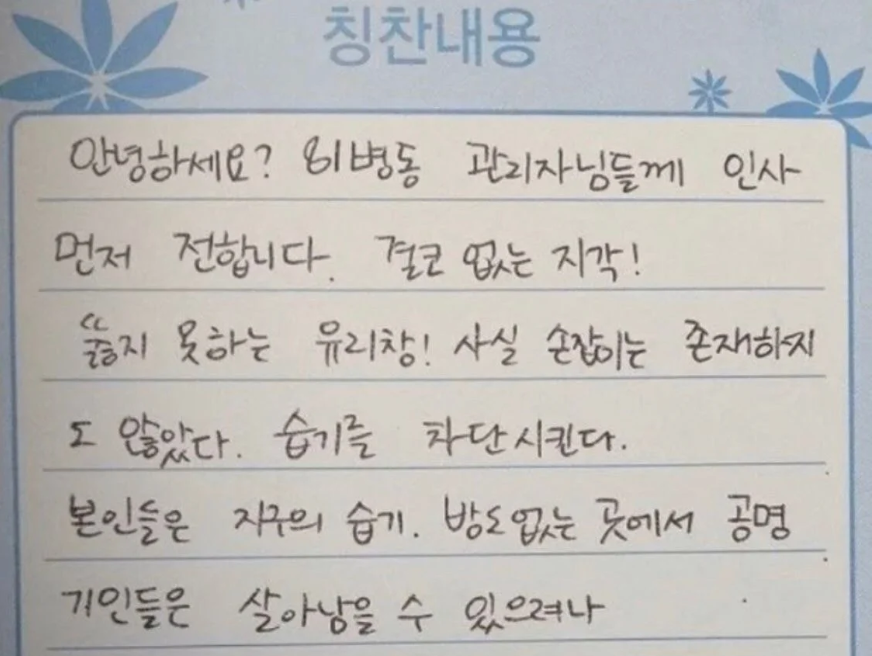 칭찬내용
안녕하세요? 81병동 관리자님들께 인사
먼저 전합니다. 결코 없는 지각!
“뚫지 못하는 유리창! 사실 손잡이는 존재하지
도 않았다. 습기를 차단시킨다.
본인들은 지구의 습기. 방도없는 곳에서 공명
기인들은 살아남을 수 있으려나